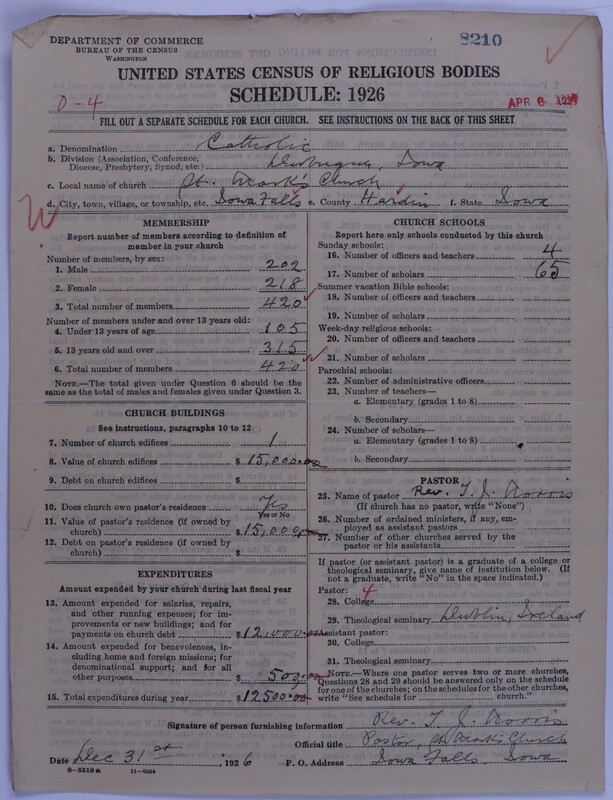 DEPARTMENT OF COMMERCE
BUREAU OF THE CENSUS
WASHINGTON
8210
UNITED STATES CENSUS OF RELIGIOUS BODIES
SCHEDULE: 1926
0-4
APR 6 1927
FILL OUT A SEPARATE SCHEDULE FOR EACH CHURCH. SEE INSTRUCTIONS ON THE BACK OF THIS SHEET
a. Denomination Catholic
b. Division (Association, Conference, Diocese, Presbytery, Synod, etc.) Dubuque, Iowa
c. Local name of church St. Mark's Church
d. City, town, village, or township, etc. Iowa Falls e. County Hardin f. State Iowa
MEMBERSHIP
Report number of members according to definition of
member in your church
Number of members, by sex:
1. Male 202
2. Female 218
3. Total number of members 420
Number of members under and over 13 years old:
4. Under 13 years of age 105
5. 13 years old and over 315
6. Total number of members 420
NOTE.—The total given under Question 6 should be
same as the total of males and females given under Question 3.
CHURCH BUILDINGS
See instructions, paragraphs 10 to 12
7. Number of church edifices 1
8. Value of church edifices $ 15,000.00
9. Debt on church edifices $
10. Does church own pastor's residence Yes
Yes or No
11. Value of pastor's residence (if owned by
church) $ 15,000.00
12. Debt on pastor's residence (if owned by
church) $
EXPENDITURES
Amount expended by your church during last fiscal year
13. Amount expended for salaries, repairs,
and other running expenses; for im-
provements or new buildings; and for
payments on church debt $ 12,000.00
14. Amount expended for benevolences,
including home and foreign missions; for
denominational support; and for all
other purposes $ 500.00
15. Total expenditures during year $ 12500.00
CHURCH SCHOOLS
Report here only schools conducted by this church
Sunday schools:
16. Number of officers and teachers 4
17. Number of scholars 65
Summer vacation Bible schools:
18. Number of officers and teachers
19. Number of scholars
Week-day religious schools:
20. Number of officers and teachers
21. Number of scholars
Parochial schools:
22. Number of administrative officers
23. Number of teachers—
a. Elementary (grades 1 to 8)
b. Secondary
24. Number of scholars—
a. Elementary (grades 1 to 8)
b. Secondary
PASTOR
25. Name of pastor Rev. T. J. Norris
(If church has no pastor, write "None")
26. Number of ordained ministers, if any, em-
ployed as assistant pastors
27. Number of other churches served by the
pastor or his assistants
If pastor (or assistant pastor) is a graduate of a college or
theological seminary, give name of institution below. (If
not a graduate, write "No" in the space indicated.)
Pastor: 4
28. College
29. Theological seminary Dublin, Ireland
Assistant pastor:
30. College
31. Theological seminary
NOTE.—Where one pastor serves two or more churches,
Questions 28 and 29 should be answered only on the schedule
for one of the churches; on the schedules for the other churches,
write "See schedule for church."
Signature of person furnishing information Rev. T. J. Norris
Official title Pastor, St. Mark's Church
Date Dec 31st, 1926 P. O. Address Iowa Falls Iowa
8-5518 a 11-9054